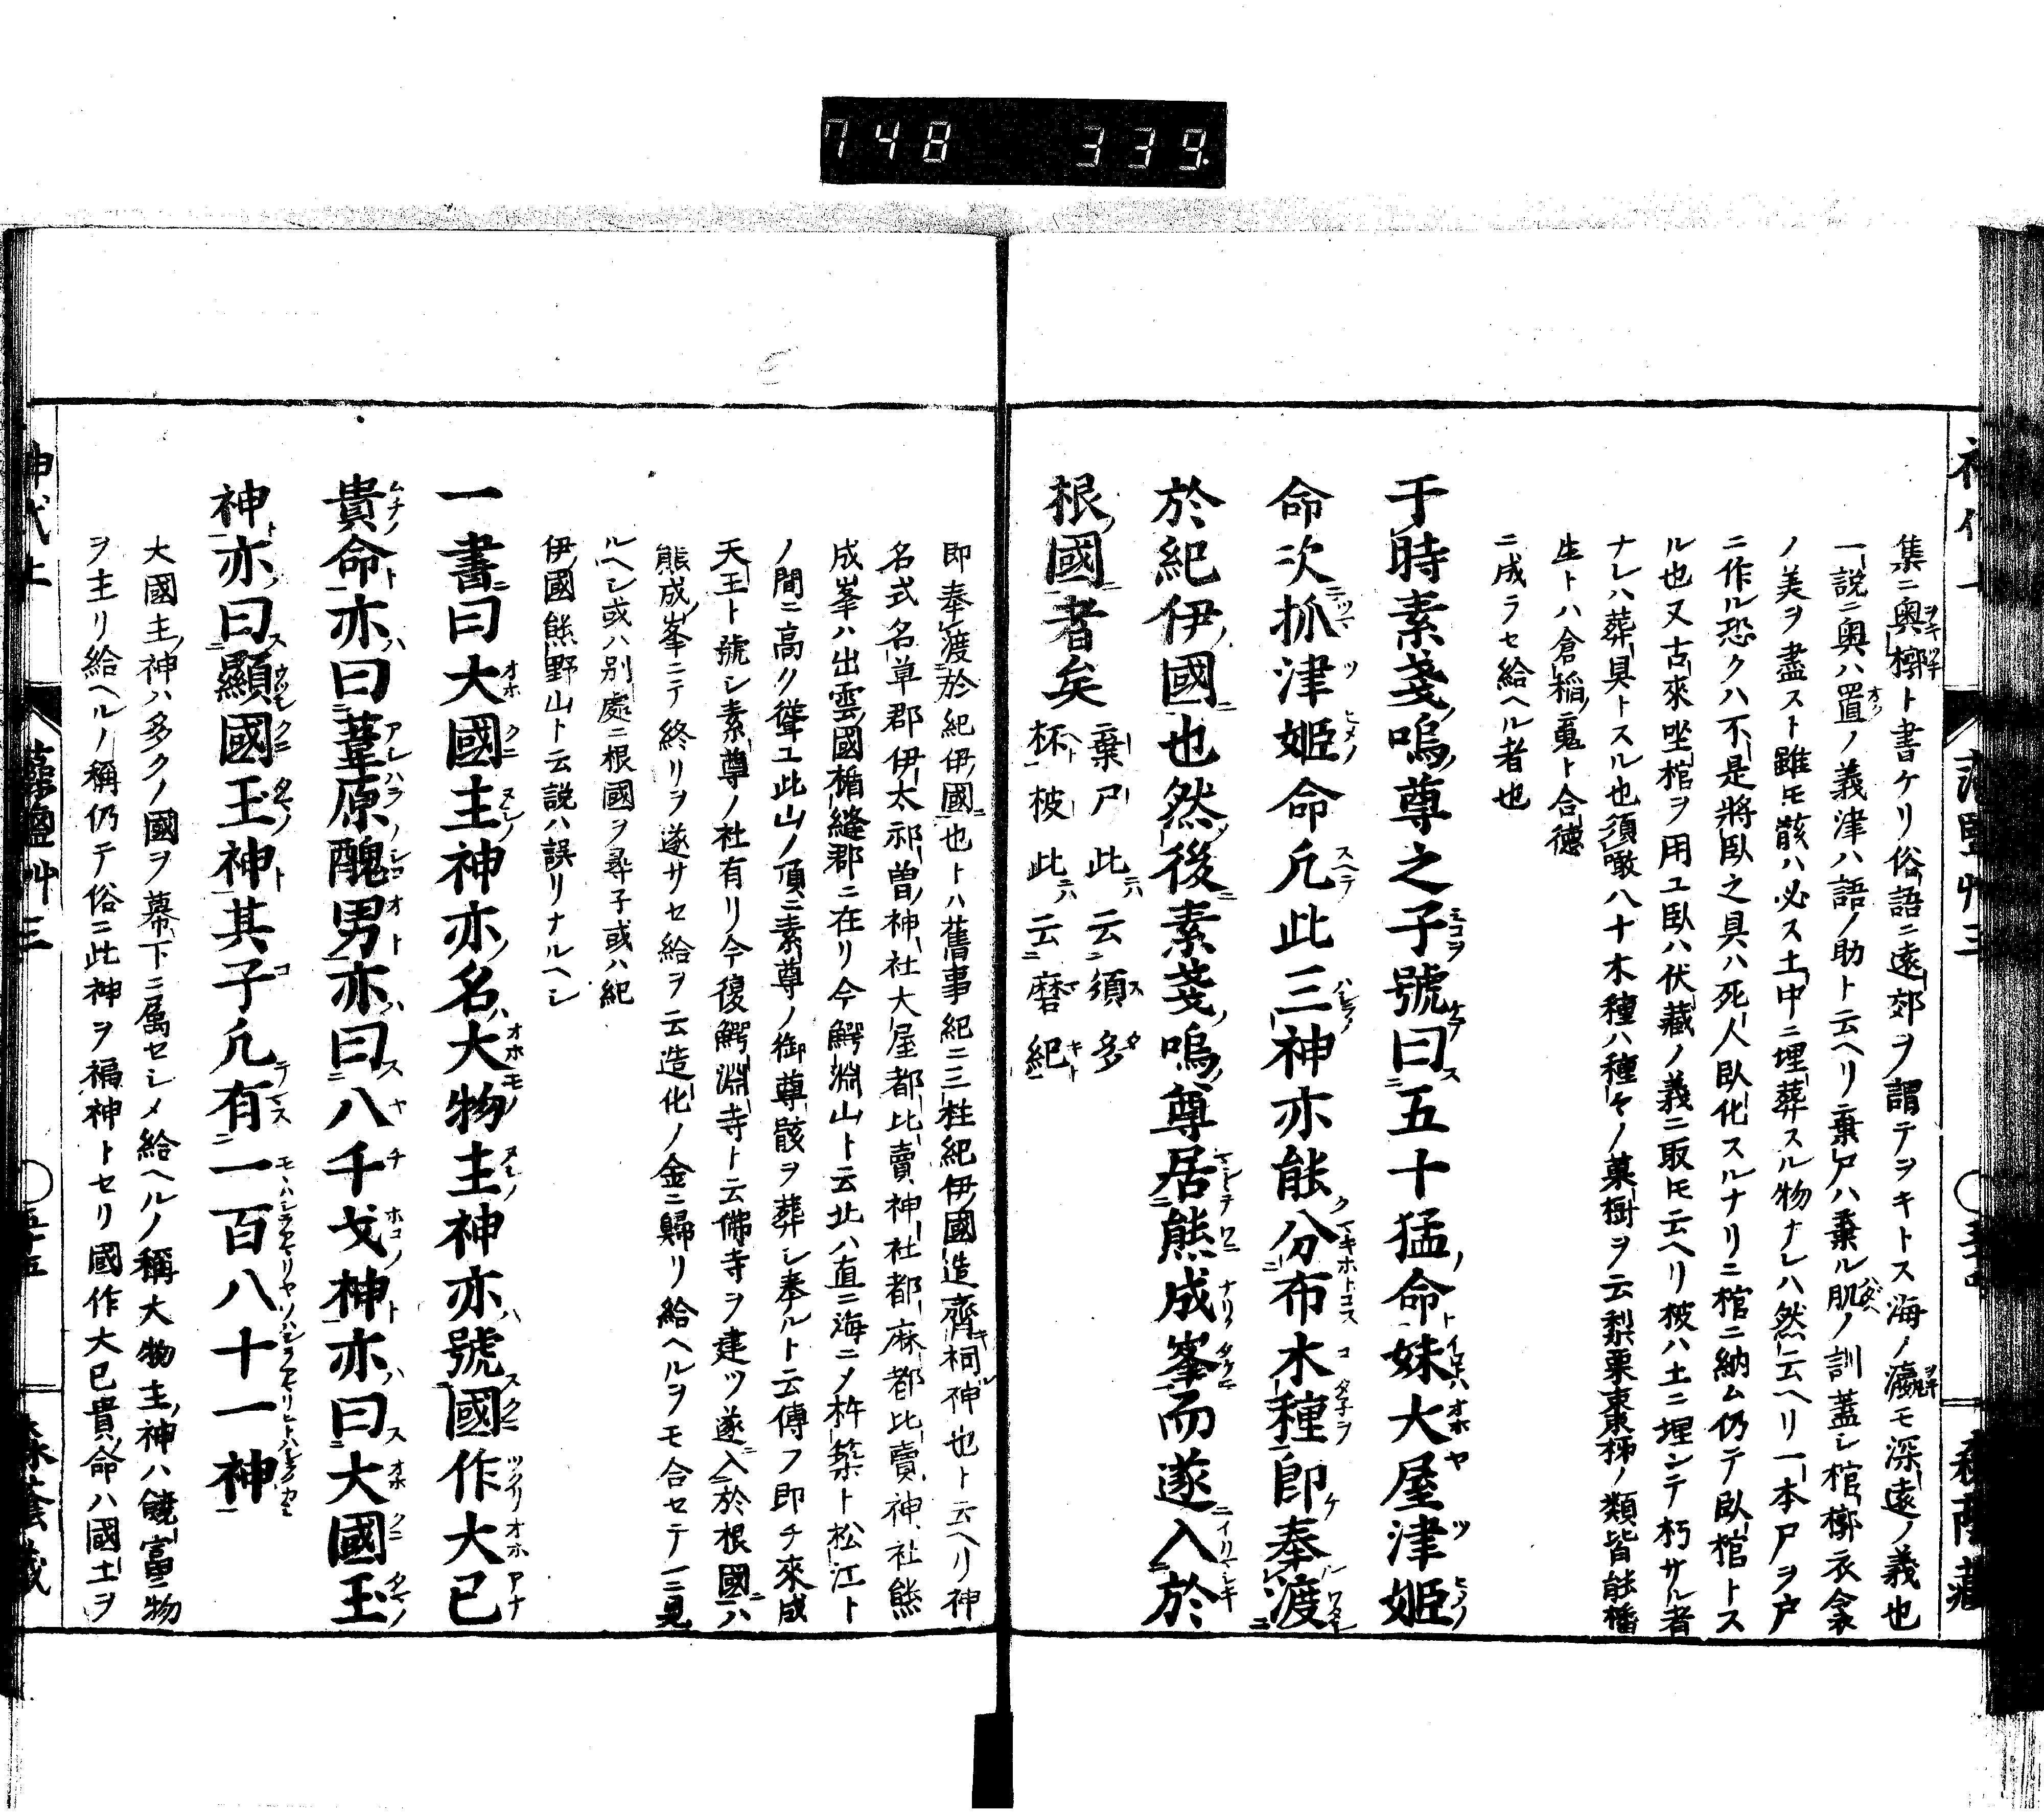 748 339
集ニ奥槨ト書ケリ俗語ニ遠郊ヲ謂テヲキトス海ノ瀛モ深遠ノ義也
一說ニ奥ハ置ノ義津ハ語ノ助ト云ヘリ棄戸ハ棄ル肌ノ訓蓋シ棺槨衣衾
ノ美ヲ盡スト雖モ骸ハ必ス土中ニ埋葬スル物ナレハ然云ヘリ一本尸ヲ戸
ニ作ル恐クハ不是將臥之具ハ死人臥化スルナリニ棺ニ納ム仍テ臥棺トス
ル也又古來坐棺ヲ用ユ臥ハ伏藏ノ義ニ取モ云ヘリ柀ハ土ニ埋ンテ朽サル者
ナレハ葬具トスル也須噉八十木種ハ種々ノ菓樹ヲ云梨栗棗柿ノ類皆能播
生トハ倉稲䰟ト合德
ニ成ラセ給ヘル者也
于時素戔嗚尊之子號曰五十猛命妹大屋津姫
命次抓津姫命凡此三神亦能分布木種即奉渡
於紀伊國也然後素戔嗚尊居熊成峯而遂入於
根國者矣
棄戸此云須多
杯柀此云磨紀
即奉渡於紀伊國也トハ舊事紀ニ三柱紀伊國造齊祠神也ト云ヘリ神
名式名草郡伊太祁曽神社大屋都比賣神社都麻都比賣神社熊
成峯ハ出雲國楯縫郡ニ在リ今鰐淵山ト云北ハ直ニ海ニメ杵築ト松江ト
ノ間ニ高ク聳ユ此山ノ頂ニ素尊ノ御尊骸ヲ葬シ奉ルト云傳フ即チ來成
天王ト號シ素尊ノ社有リ今復鰐淵寺ト云佛寺ヲ建ツ遂入於根國ハ
熊成峯ニテ終リヲ遂サセ給ヲ云造化ノ金ニ歸リ給ヘルヲモ合セテ三見
ルヘシ或ハ別處ニ根國ヲ尋子或ハ紀
伊國熊野山ト云說ハ誤リナルヘシ
一書曰大國主神亦名大物主神亦號國作大已
貴命亦曰葦原醜男亦曰八千戈神亦曰大國玉
神亦曰顯國玉神其子凡有一百八十一神
大國主神ハ多クノ國ヲ幕下ニ屬セシメ給ヘルノ稱大物主神ハ饒富物
ヲ主リ給ヘルノ稱仍テ俗ニ此神ヲ福神トセリ國作大已貴命ハ國土ヲ
神代上
藻鹽艸三